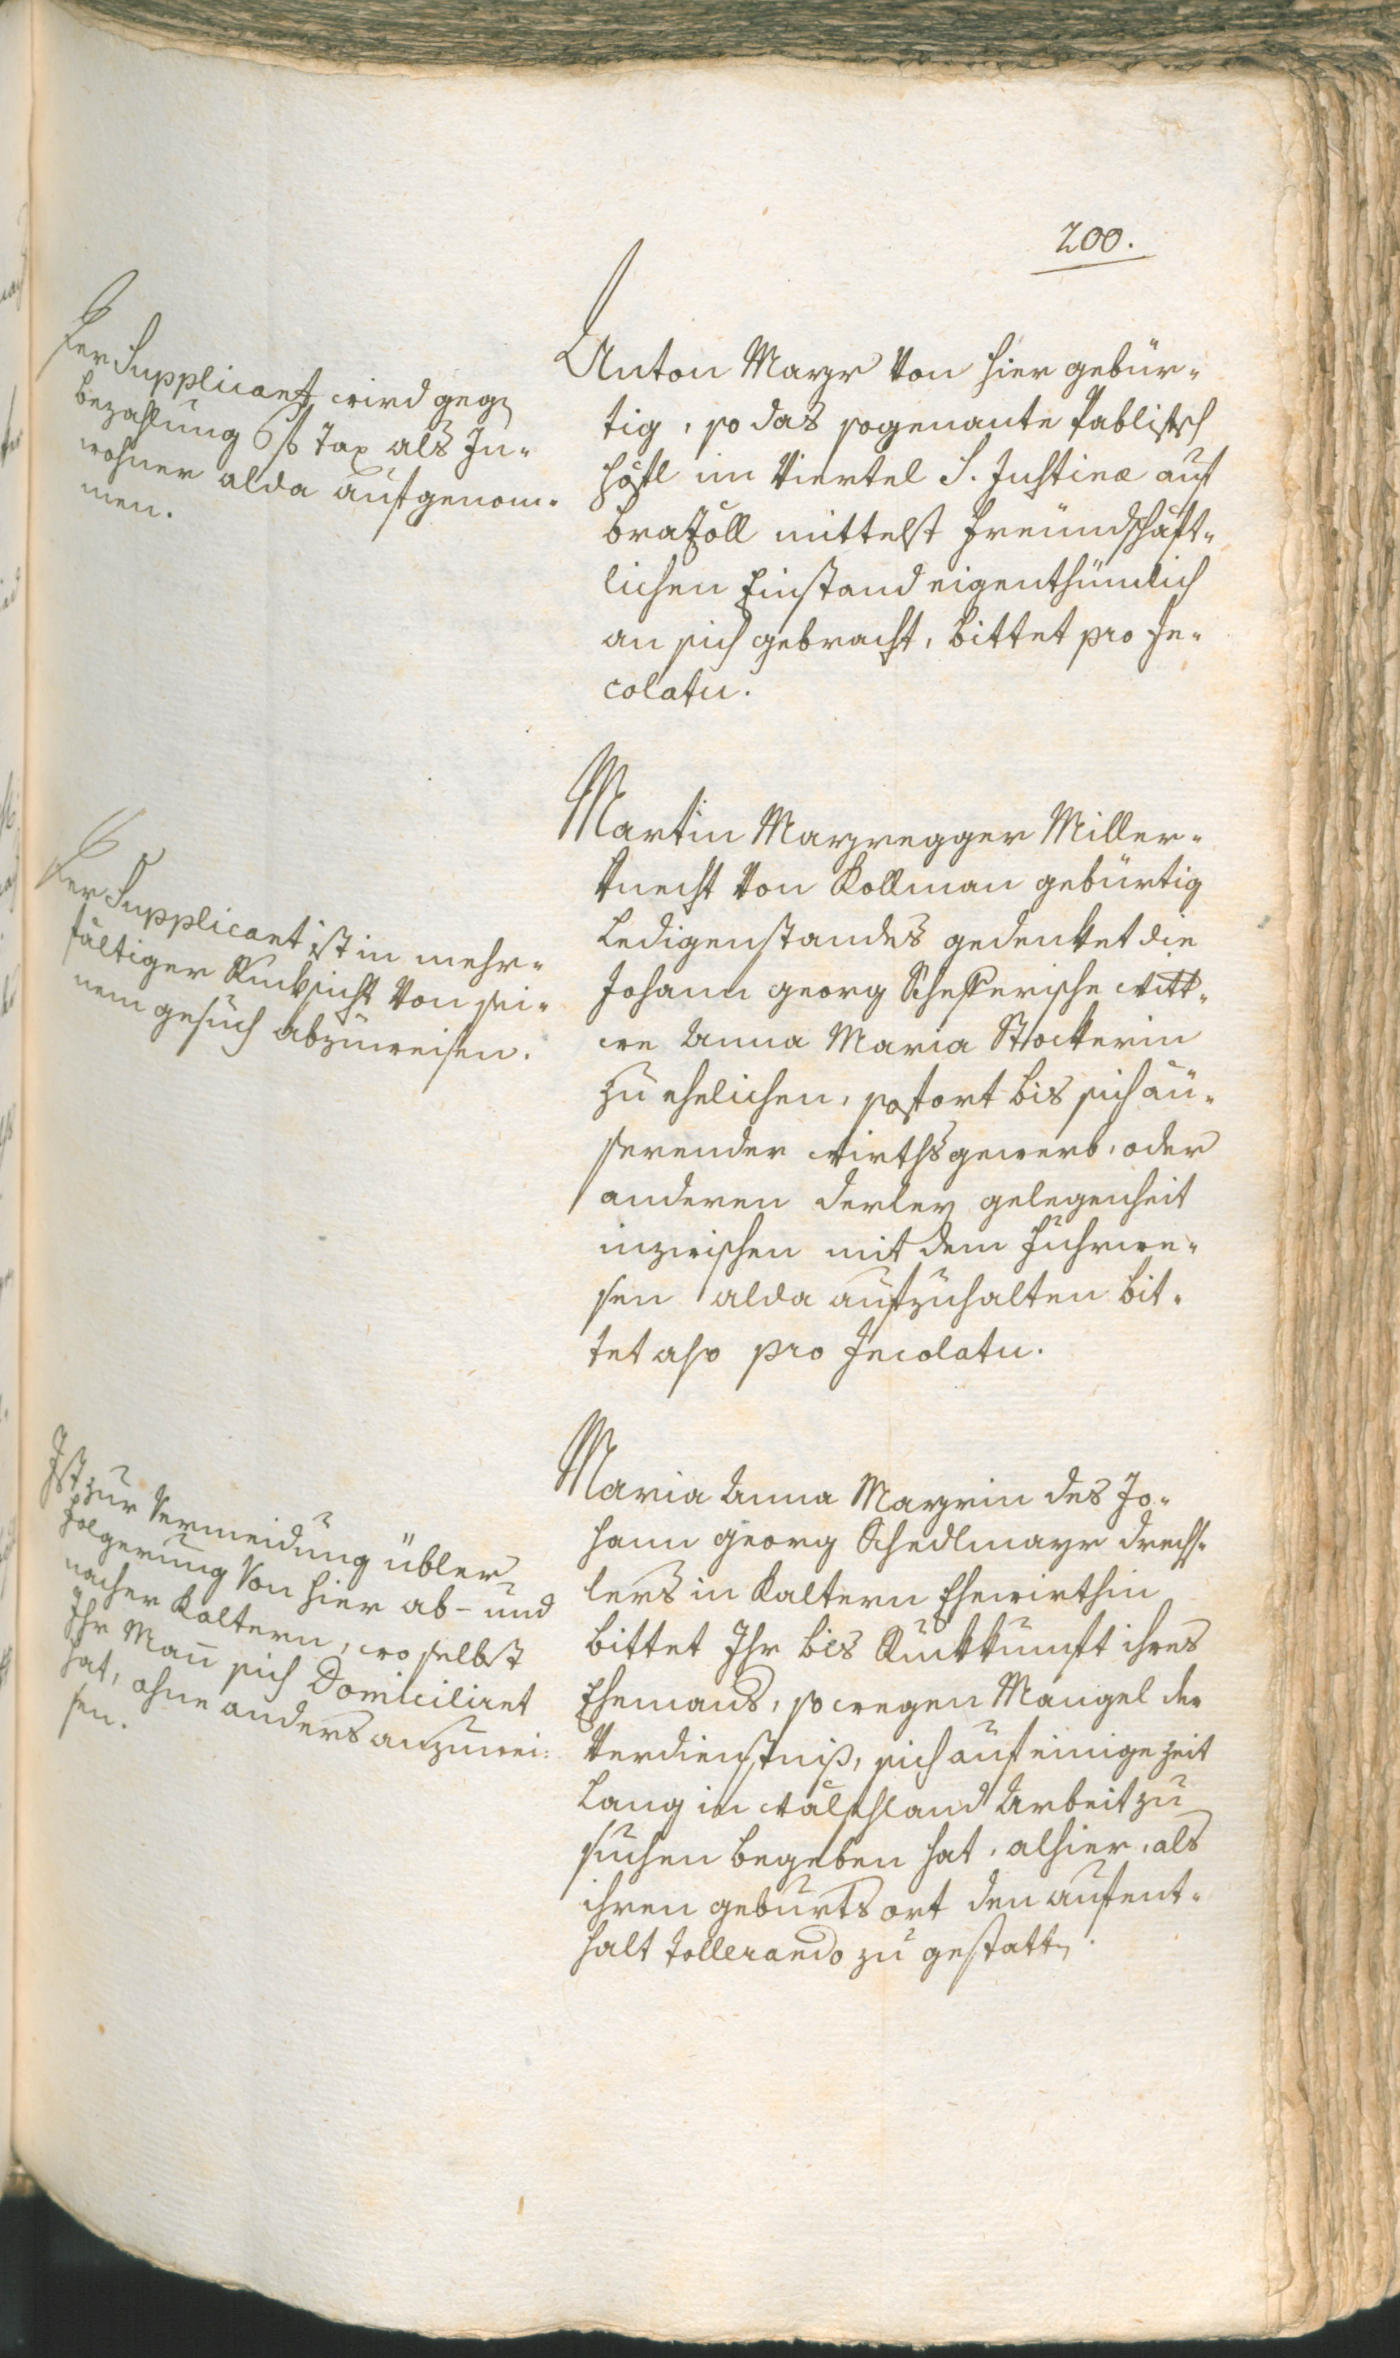 200.
Der Supplicant wird gegen
bezahlung 6 f Tax als In-
wohner alda aufgenom-
men.
Anton Mayr von hier gebür-
tig, so das sogenante Pablitsch
höfl im Viertel S. Justinæ auf
brazoll mittelst freundschaft-
lichen Einstand eigenthümlich
an sich gebracht, bittet pro In-
colatu.
Der Supplicant ist in mehr-
fältiger Rucksicht von sei-
nem gesuch abzuweisen.
Martin Mayregger Miller-
knecht von Kollman gebürtig
Ledigenstandes gedenket die
Johann georg Schefferische Witt-
we Anna Maria Stockerin
zu ehelichen, sofort bis sich äu-
serender Wirthsgewerb, oder
anderen derley gelegenheit
inzwischen mit dem fuhrwe-
sen alda aufzuhalten bit-
tet also pro Incolatu.
Ist zur Vermeidung übler
folgerung von hier ab- und
nacher Kaltern, wo selbst
Ihr Mann sich Domiciliret
hat, ohne anders anzuwei-
sen.
Maria Anna Mayrin des Jo-
hann georg Schedlmayr drechs-
lers in Kaltern Ehewirthin
bittet Ihr bis Ruckkunft ihres
Ehemans, so wegen Mangel der
Verdienstniß, sich auf einige zeit
Lang in Wälschland Arbeit zu
suchen begeben hat, alhier, als
ihren geburtsort den aufent-
halt tollerando zu gestatten.